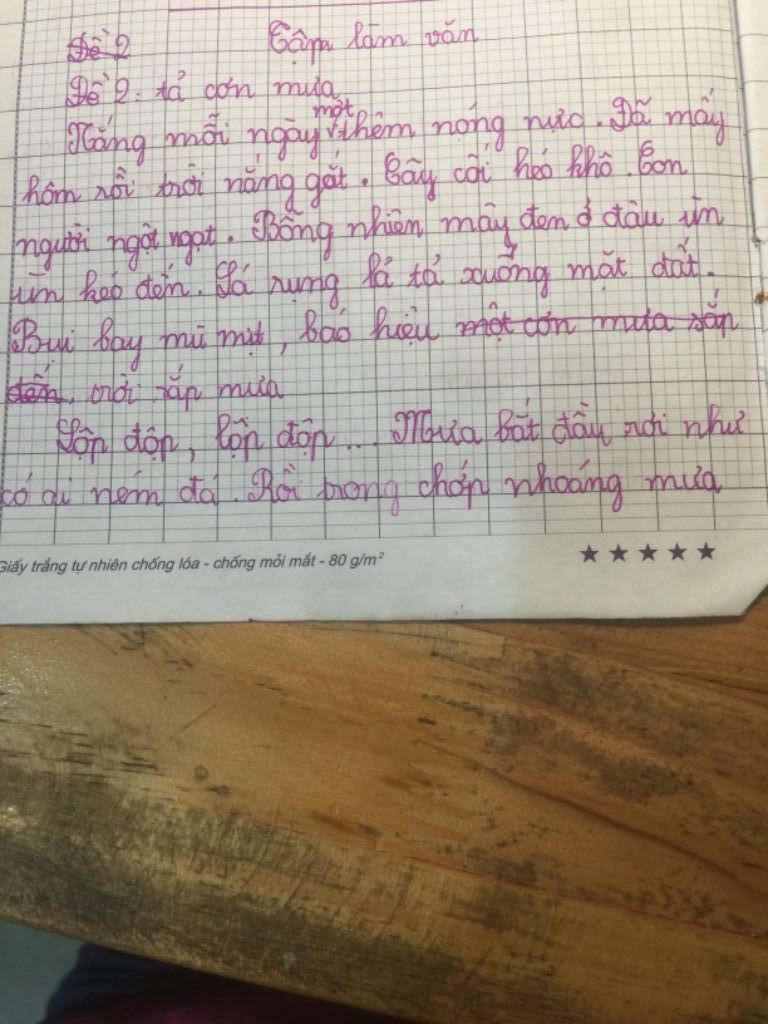 Đề 2 Tập làm văn
Đề 2: tả cơn mưa
Nắng mỗi ngày một thêm nóng nực. Đã mấy
hôm rồi trời nắng gắt. Cây cối héo khô. Con
người ngột ngạt. Bỗng nhiên mây đen ở đâu ùn
ùn kéo đến. Lá rụng lả tả xuống mặt đất.
Bụi bay mù mịt, báo hiệu một cơn mưa sắp
đến, trời sắp mưa
Lộp độp, lộp độp... Mưa bắt đầu rơi như
có ai ném đá. Rồi trong chớp nhoáng mưa
Giấy trắng tự nhiên chống lóa - chống mỏi mắt - 80 g/m²